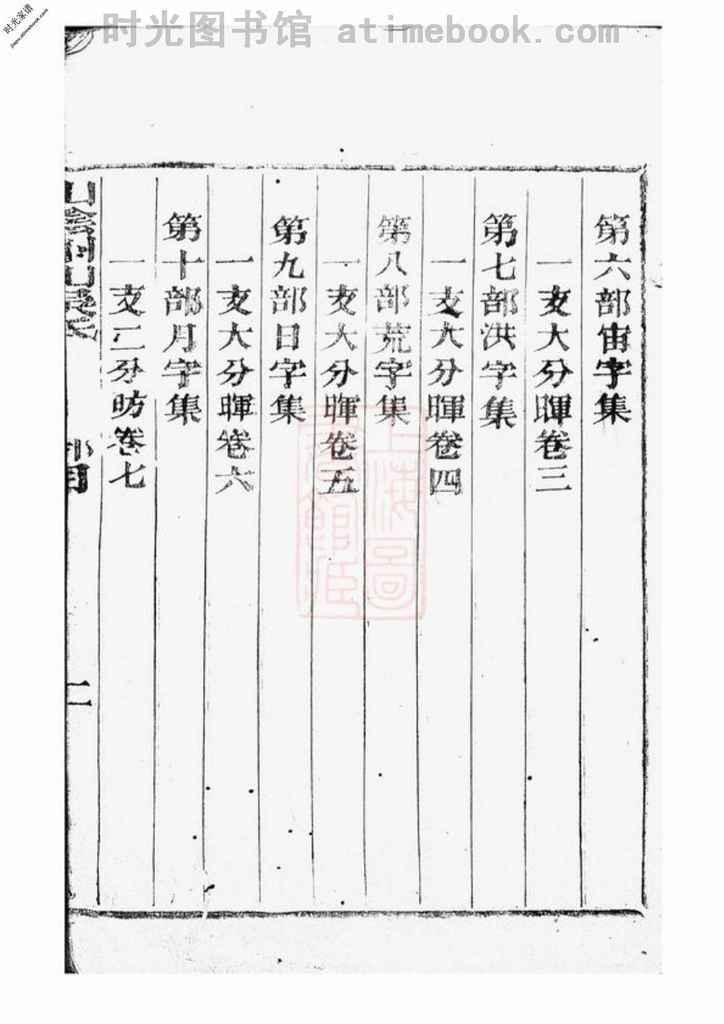 时光图书馆 atimebook.com
时光家谱
jiapu.atimebook.com
第六部宙字集
一支大分暉卷三
第七部洪字集
一支大分暉卷四
第八部荒字集
一支大分暉卷五
第九部日字集
一支大分暉卷六
第十部月字集
一支二分昉卷七
山陰州山吳氏
部目
二
上海圖